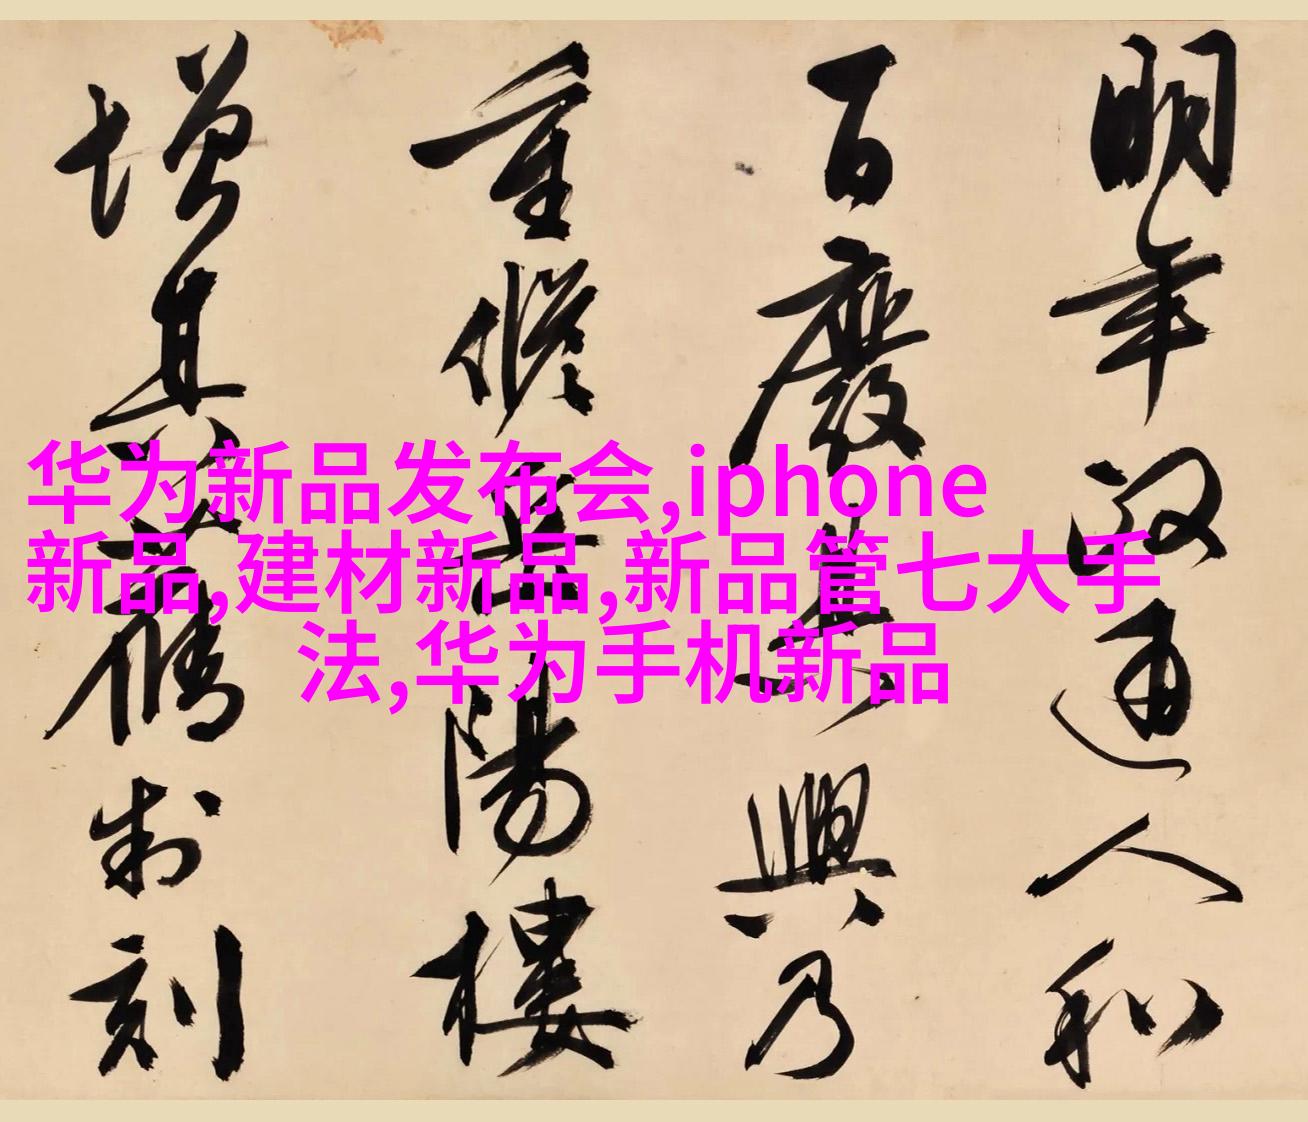 明年政通人和
百废具兴乃
重修岳陽樓
增其旧脩制
刻
华为新品发布会,iphone
新品,建材新品,新品管七大手
法,华为手机新品